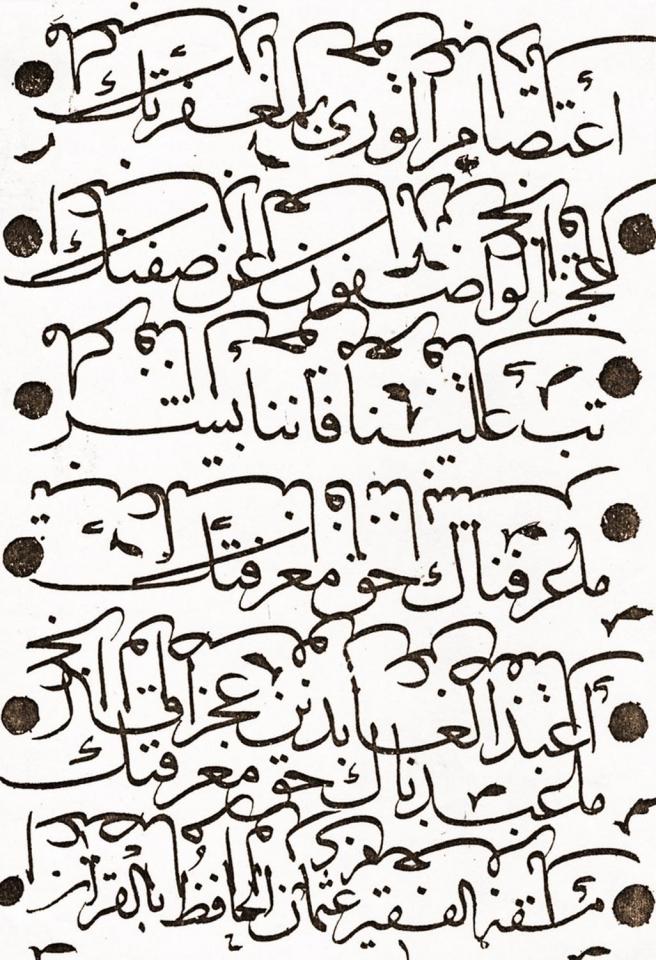 اعتصام الورى بمغفرتك
عجز الواصفون عن صفتك
تب علينا فاننا بشر
ما عرفناك حق معرفتك
أعبد العابدين
ما عبدناك حق معرفتك
مشقه الفقير عثمان الحافظ بالقرآن